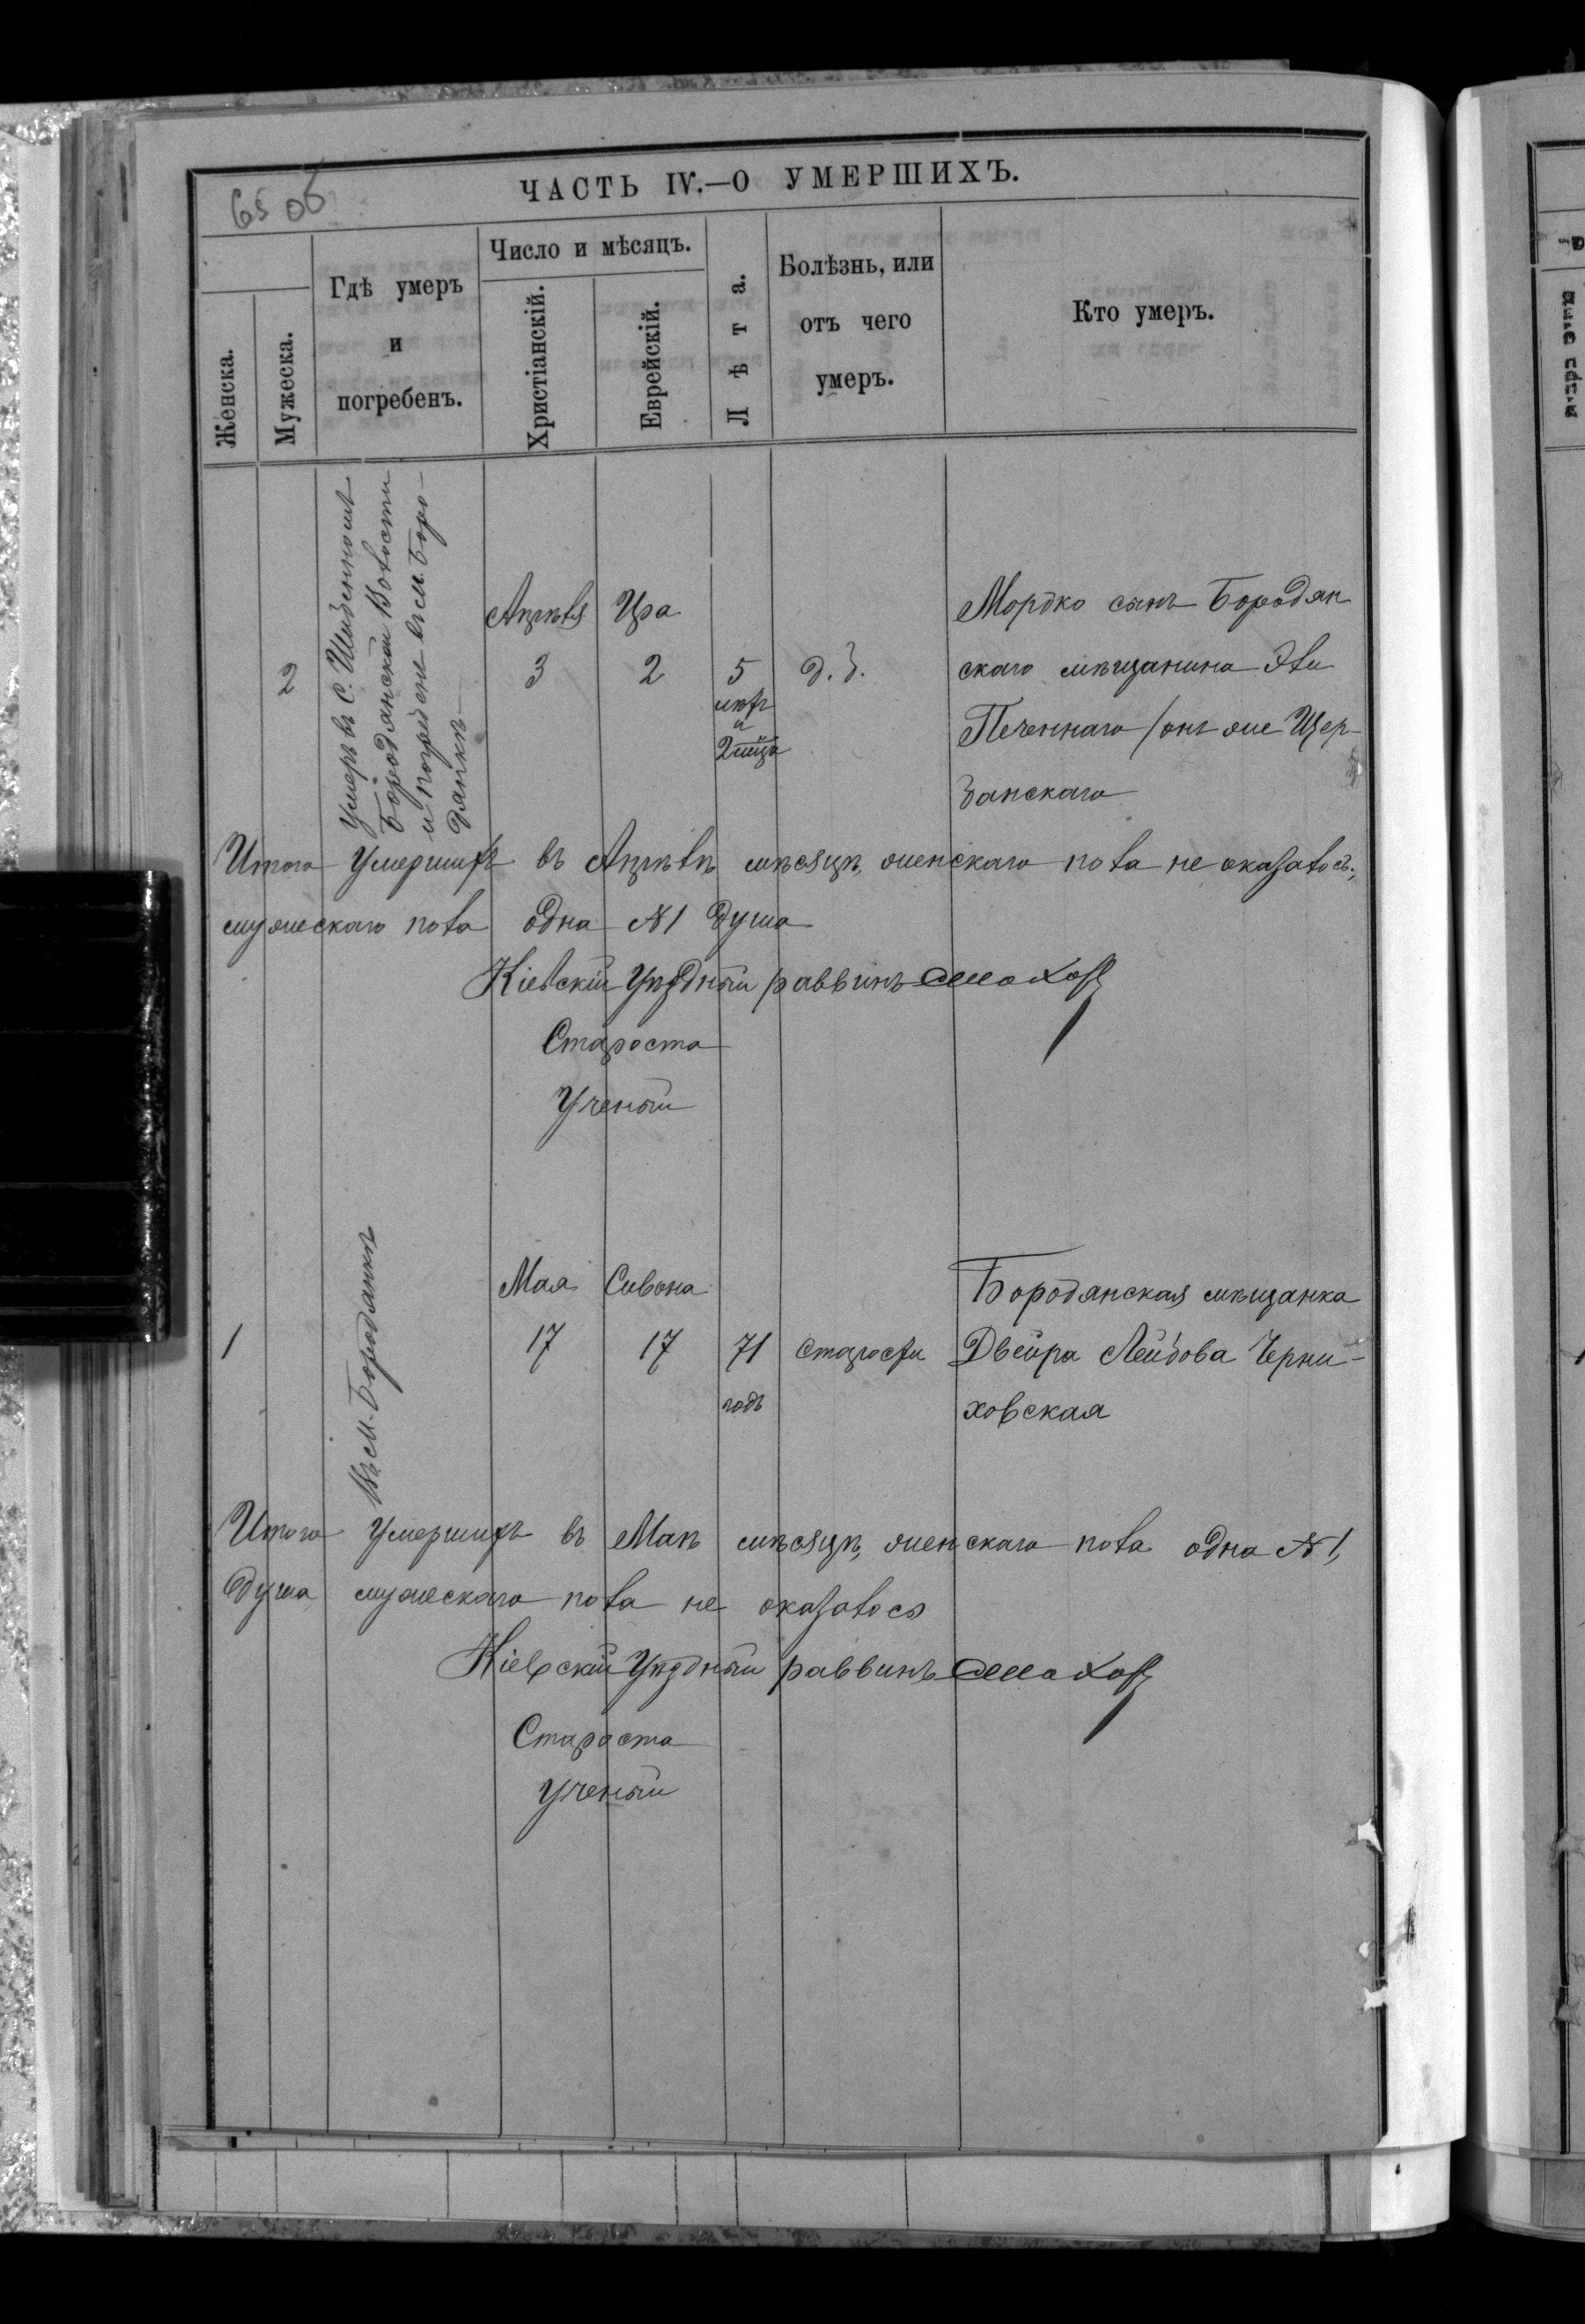 65 об
ЧАСТЬ IV.—О УМЕРШИХЪ.
Женска.
Мужеска.
Гдѣ умеръ
и
погребенъ.
Число и мѣсяцъ.
Христіанскій.
Еврейскій.
Лѣта.
Болѣзнь, или
отъ чего
умеръ.
Кто умеръ.
2
Умеръ въ С.
Бородянской Волости
и погребенъ въ м. Боро-
дянкѣ
Апрѣля
3
Ира
2
5
лѣтъ
и
2 мѣца
Мордко сынъ Бородян
скаго мѣщанина Эли
Печеннаго /онъ же Щер-
банскаго
Итого Умершихъ въ Апрѣлѣ мѣсяцѣ, женскаго пола не оказалось;
мужескаго пола одна №1 душа
Кіевскій Уѣздный раввинъ
Староста
Ученый
1
Въ м. Бородянкѣ
Мая
17
Сивона
17
71
годъ
старости
Бородянская мѣщанка
Двейра Лейбова Черни-
ховская
Итого Умершихъ въ Маѣ мѣсяцѣ, женскаго пола одна №1,
душа, мужескаго пола не оказалось
Кіевскій Уѣздный раввинъ
Староста
Ученый